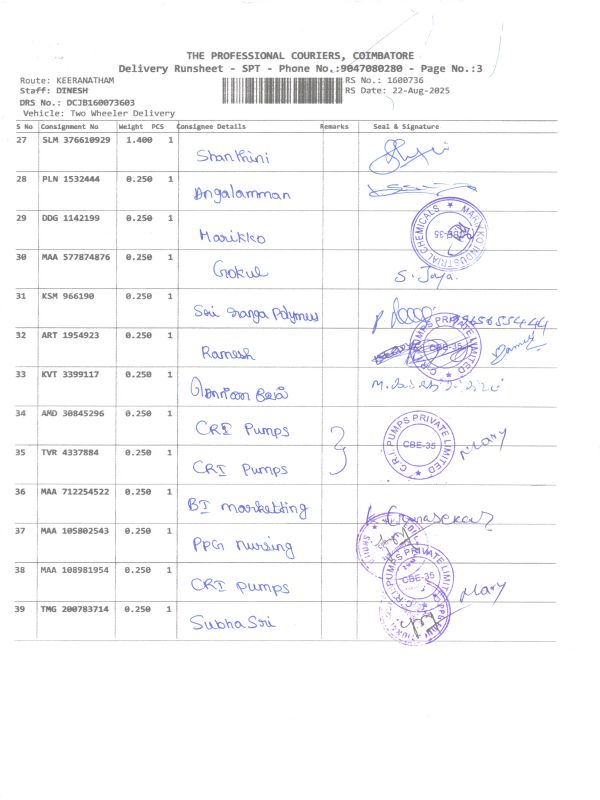 THE PROFESSIONAL COURIERS, COIMBATORE
Delivery Runsheet - SPT - Phone No.:9047080280 - Page No.:3
Route: KEERANATHAM RS No.: 1600736
Staff: DINESH RS Date: 22-Aug-2025
DRS No.: DCJB160073603
Vehicle: Two Wheeler Delivery
S No Consignment No Weight PCS Consignee Details Remarks Seal & Signature
27 SLM 376610929 1.400 1 Shanthini
28 PLN 1532444 0.250 1 Angalamman
29 DDG 1142199 0.250 1 Marikko MARIKKO INDUSTRIAL CHEMICALS CBE-35
30 MAA 577874876 0.250 1 Gokul S. Jaya.
31 KSM 966190 0.250 1 Sri Ranga Polymers
32 ART 1954923 0.250 1 Ramesh C.R.I. PUMPS PRIVATE LIMITED CBE-35
33 KVT 3399117 0.250 1
34 AMD 30845296 0.250 1 CRI Pumps C.R.I. PUMPS PRIVATE LIMITED CBE-35 Mary
35 TVR 4337884 0.250 1 CRI Pumps
36 MAA 712254522 0.250 1 BI marketting K. Gunasekar
37 MAA 105802543 0.250 1 PPG nursing
38 MAA 108981954 0.250 1 CRI pumps C.R.I. PUMPS PRIVATE LIMITED CBE-35 Mary
39 TMG 200783714 0.250 1 Subha Sri